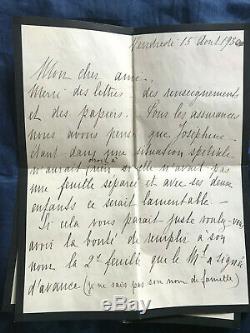 Vendredi 15 Août 19
Mon cher ami.
Merci des lettres des renseignements
et des papiers. Pour les assurances
nous avons pensé que Josephine
étant dans une situation spéciale
n'aurait droit à si elle n'avait pas
une feuille separée et avec ses deux
enfants ce serait lamentable.
Si cela vous parait juste voulez-vous
avoir la bonté de remplir à son
nom la 2e feuille que le Mal a signée
d'avance (je ne sais pas son nom de famille)